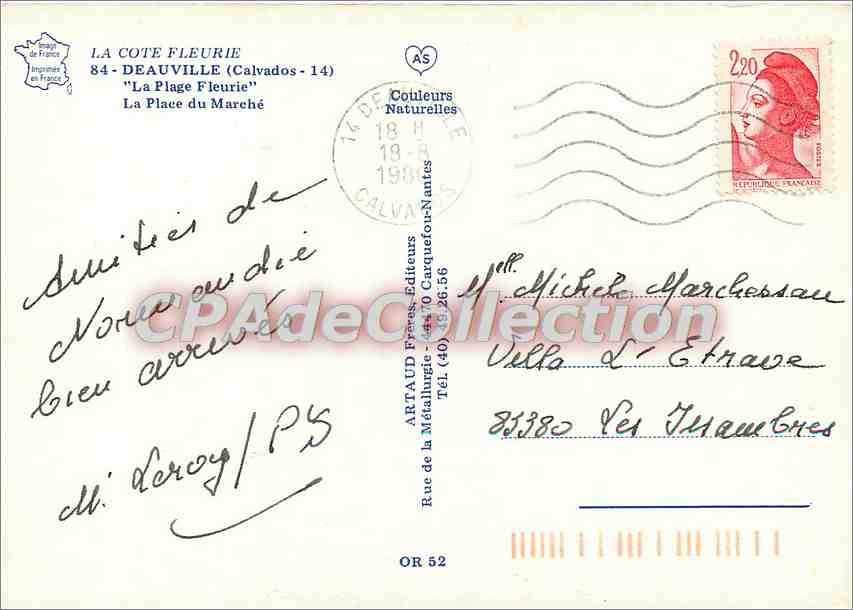 Image
de France
Imprimée
en France
LA COTE FLEURIE
84 - DEAUVILLE (Calvados - 14)
"La Plage Fleurie"
La Place du Marché
AS
Couleurs
Naturelles
14 DEAUVILLE
18 H
18-8
198
CALVADOS
2,20
POSTES
REPUBLIQUE FRANÇAISE
Amitiés de
Normandie
bien arrivés
M. Leroy/PS
CPAdeCollection
ARTAUD Frères, Editeurs
Rue de la Métallurgie - 44470 Carquefou-Nantes
Tél. (40) 49.26.56
Mell. Michele Marchessau
Villa L'Etrave
83380 Les Issambres
OR 52